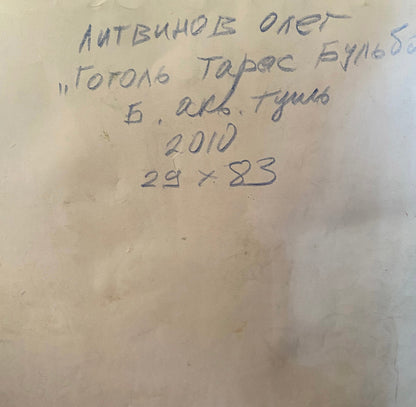 Литвинов Олег
„Гоголь Тарас Бульба
Б. акв. тушь
2010
29 x 83